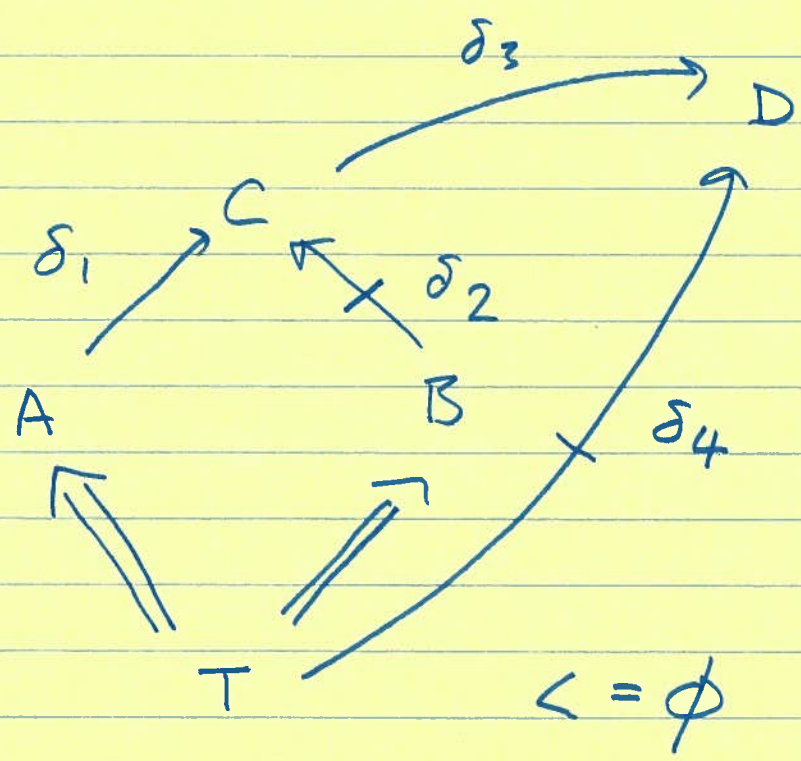 δ3
D
C
δ1
δ2
A
B
δ4
T
< = ∅